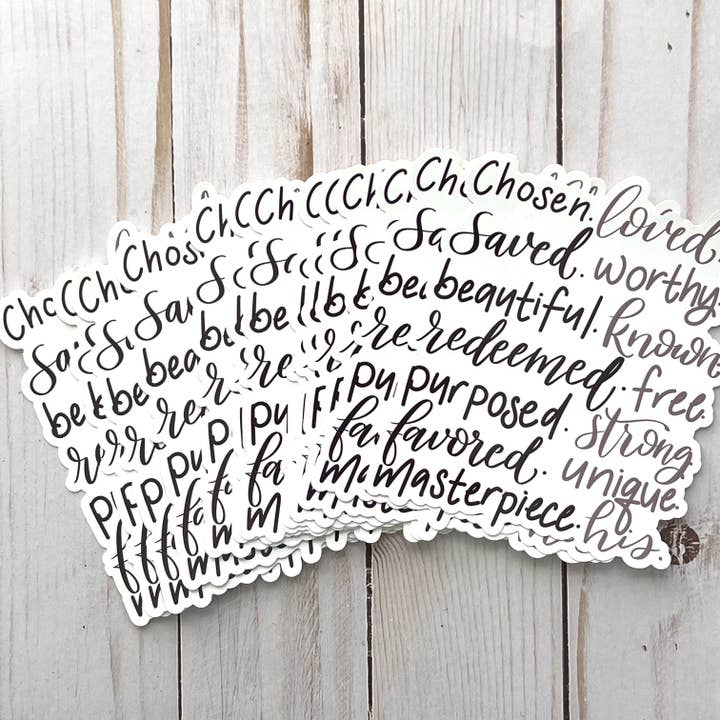 Chosen. loved.
Saved. worthy.
beautiful. known
redeemed. free.
purposed. strong.
favored. unique.
masterpiece. his.